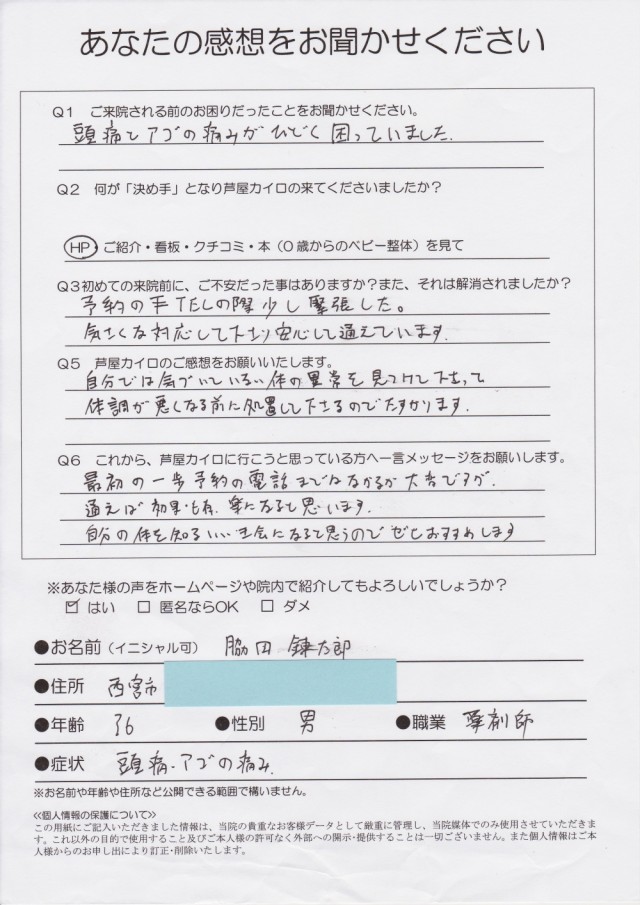 あなたの感想をお聞かせください
Q1 ご来院される前のお困りだったことをお聞かせください。
頭痛とアゴの痛みがひどく困っていました.
Q2 何が「決め手」となり芦屋カイロの来てくださいましたか？
HP ご紹介・看板・クチコミ・本（0歳からのベビー整体）を見て
Q3初めての来院前に、ご不安だった事はありますか？また、それは解消されましたか？
予約の手TELの際少し緊張した。
気さくな対応して下さり安心して通えています.
Q5 芦屋カイロのご感想をお願いいたします。
自分では気づいていない体の異常を見つけて下さって
体調が悪くなる前に処置して下さるのでたすかります.
Q6 これから、芦屋カイロに行こうと思っている方へ一言メッセージをお願いします。
最初の一歩予約の電話まではなかなか大きですが.
通えば効果も有.楽になると思います.
自分の体を知るいい機会になると思うのでぜひおすすめします
※あなた様の声をホームページや院内で紹介してもよろしいでしょうか？
☑ はい □ 匿名ならOK □ ダメ
●お名前（イニシャル可） 脇田 錬太郎
●住所 西宮市
●年齢 36 ●性別 男 ●職業 薬剤師
●症状 頭痛.アゴの痛み.
※お名前や年齢や住所など公開できる範囲で構いません。
≪個人情報の保護について≫
この用紙にご記入いただきました情報は、当院の貴重なお客様データとして厳重に管理し、当院媒体でのみ使用させていただきま
す。これ以外の目的で使用すること及びご本人様の許可なく外部への開示・提供することは一切ございません。また個人情報はご本
人様からのお申し出により訂正・削除いたします。